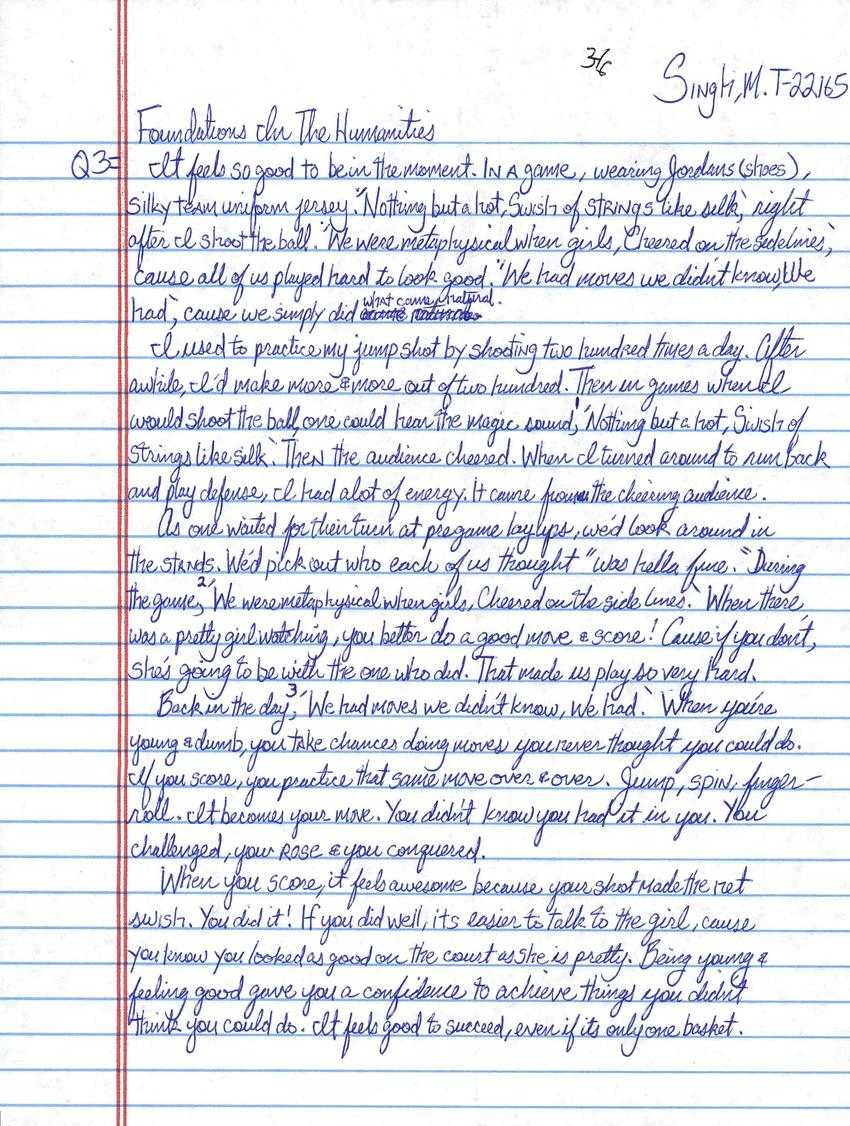 3/6
Singh, M. T-22165
Foundations In The Humanities
Q3= It feels so good to be in the moment. IN A game, wearing Jordans (shoes),
silky team uniform jersey. "Nothing but a hot, Swish of STRINGS like silk", right
after I shoot the ball. "We were metaphysical when girls, Cheered on the sidelines",
cause all of us played hard to look good. "We had moves we didn't know, We
had", cause we simply did what came natural.
I used to practice my jump shot by shooting two hundred times a day. After
awhile, I'd make more & more out of two hundred. Then in games when I
would shoot the ball, one could hear the magic sound, "Nothing but a hot, Swish of
Strings like silk". Then the audience cheered. When I turned around to run back
and play defense, I had alot of energy. It came from the cheering audience.
As one waited for their turn at pregame layups, we'd look around in
the stands. We'd pick out who each of us thought "was hella fine." During
the game,2 "We were metaphysical when girls, Cheered on the side lines." When there
was a pretty girl watching, you better do a good move & score! Cause if you don't,
she's going to be with the one who did. That made us play so very hard.
Back in the day,3 "We had moves we didn't know, We had." When you're
young & dumb, you take chances doing moves you never thought you could do.
If you score, you practice that same move over & over. Jump, spin, finger-
roll. It becomes your move. You didn't know you had it in you. You
challenged, you ROSE & you conquered.
When you score, it feels awesome because your shot made the net
swish. You did it! If you did well, its easier to talk to the girl, cause
you know you looked as good on the court as she is pretty. Being young &
feeling good gave you a confidence to achieve things you didn't
think you could do. It feels good to succeed, even if its only one basket.